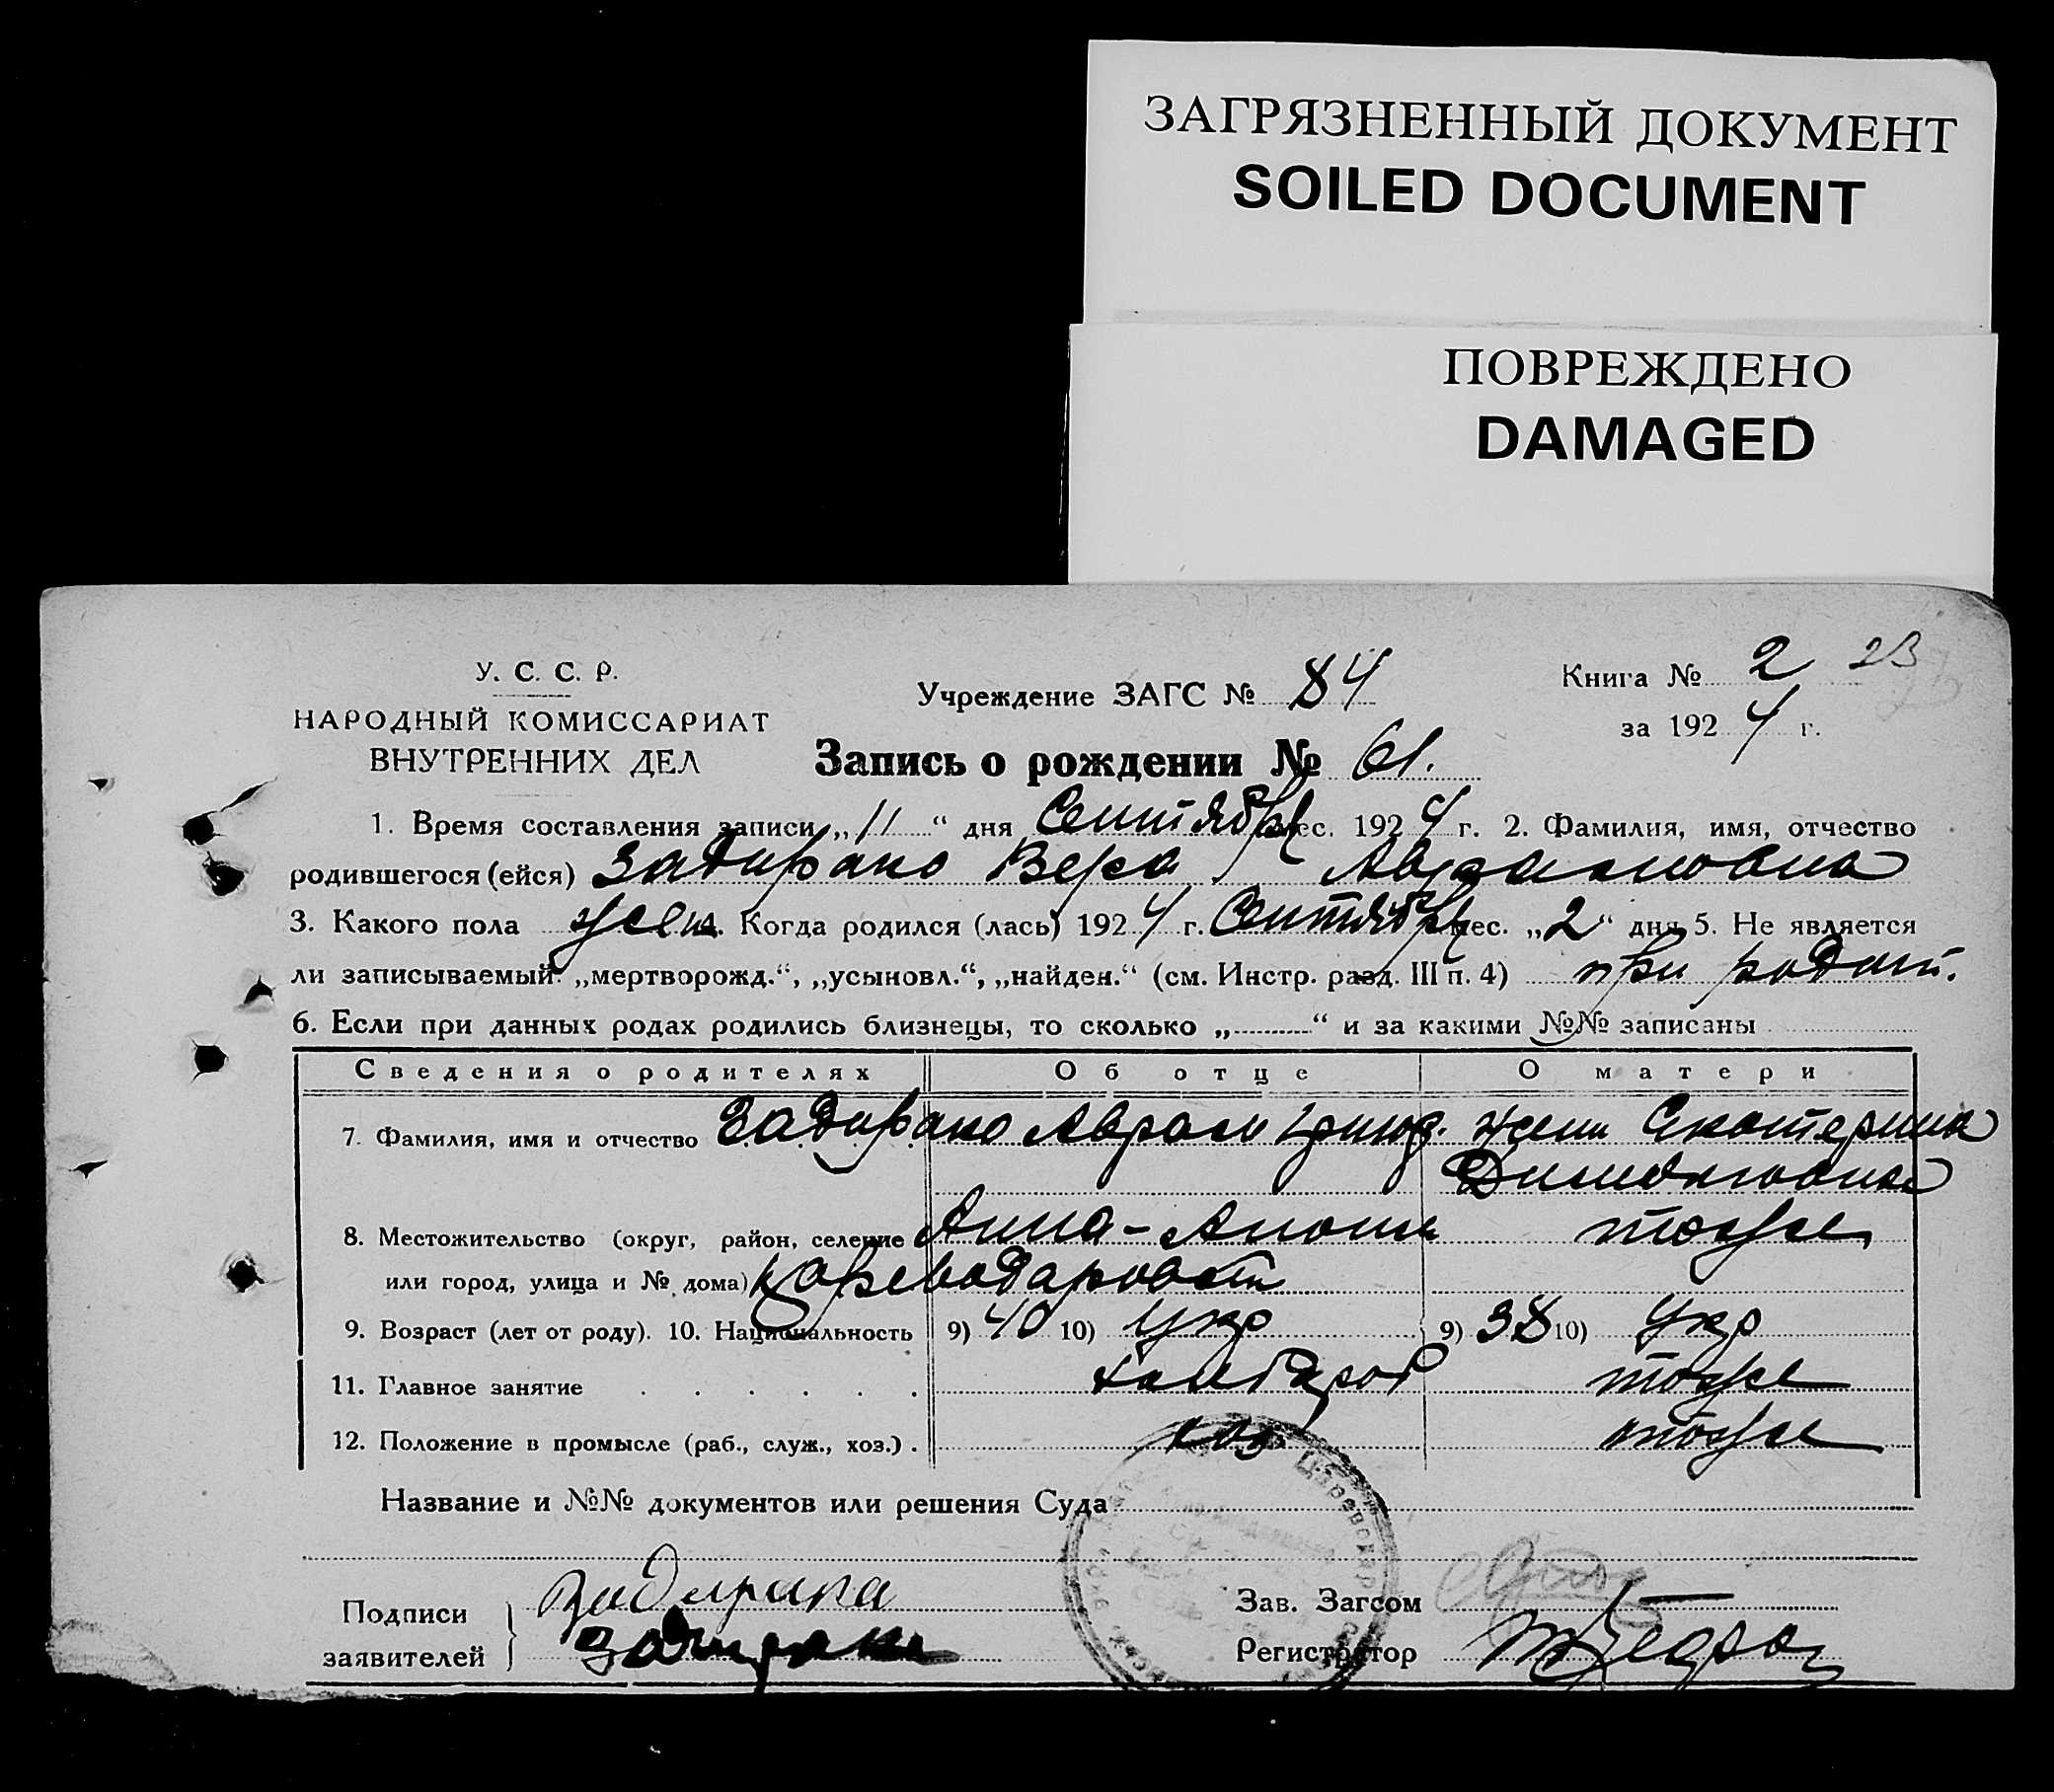 ЗАГРЯЗНЕННЫЙ ДОКУМЕНТ
SOILED DOCUMENT
ПОВРЕЖДЕНО
DAMAGED
У. С. С. Р.
НАРОДНЫЙ КОМИССАРИАТ
ВНУТРЕННИХ ДЕЛ
Учреждение ЗАГС № 84
Книга № 2 23
за 1924 г.
Запись о рождении № 61.
1. Время составления записи „11“ дня Сентября мес. 1924 г. 2. Фамилия, имя, отчество
родившегося (ейся) Задирако Вера Аврамовна
3. Какого пола жен. Когда родился (лась) 1924 г. Сентября мес. „2“ дня 5. Не является
ли записываемый: „мертворожд.“, „усыновл.“, „найден.“ (см. Инстр. разд. III п. 4) при родит.
6. Если при данных родах родились близнецы, то сколько „ “ и за какими №№ записаны
Сведения о родителях Об отце О матери
7. Фамилия, имя и отчество Задирако Аврам жена Екатерина
8. Местожительство (округ, район, селение Анно- тоже
или город, улица и № дома)
9. Возраст (лет от роду). 10. Национальность 9) 40 10) Укр 9) 38 10) Укр
11. Главное занятие тоже
12. Положение в промысле (раб., служ., хоз.) хоз тоже
Название и №№ документов или решения Суда
Подписи заявителей Задирака
Задирака
Зав. Загсом
Регистратор